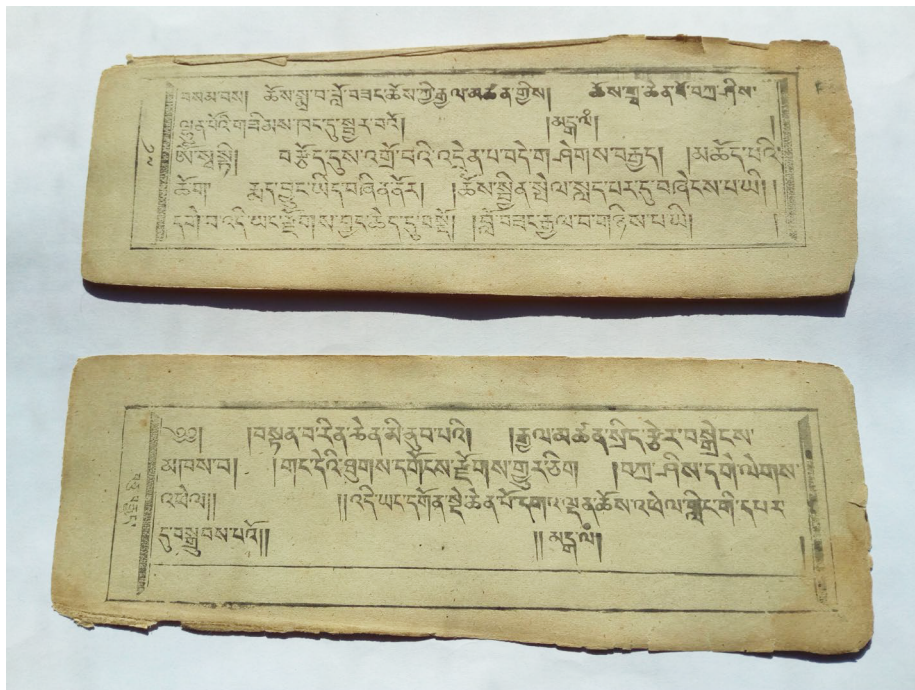 བསམ་བས། ཆོས་སྨྲ་བ་བློ་བཟང་ཆོས་ཀྱི་རྒྱལ་མཚན་གྱིས། ཆོས་གྲྭ་ཆེན་པོ་བཀྲ་ཤིས་
ལྷུན་པོའི་གཟིམས་ཁང་དུ་སྦྱར་བའོ། །མངྒ་ལཾ། །
ཨོཾ་སྭསྟི། བ་རྩོད་དུས་འགྲོ་བའི་འདྲེན་པ་བདེ་གཤེགས་བརྒྱད། །མཆོད་པའི་
ཆོག རྨད་བྱུང་ཡིད་བཞིན་ནོར། །ཆོས་སྦྱིན་སྤེལ་སླད་པར་དུ་བཞེངས་པ་ཡི། །
དགེ་བ་འདི་ཡང་རྫོགས་བྱང་ཆེད་དུ་བསྔོ། །བློ་བཟང་རྒྱལ་བ་གཉིས་པ་ཡི།
༄༅། །བསྟན་བ་རིན་ཆེན་མི་ནུབ་པའི། །རྒྱལ་མཚན་སྲིད་རྩེར་བསྒྲེངས་
མཁས་བ། །གང་དེའི་ཐུགས་དགོངས་རྫོགས་གྱུར་ཅིག །བཀྲ་ཤིས་དགེ་ལེགས་
འཕེལ།། །།འདི་ཡང་དགོན་སྡེ་ཆེན་པོ་དགའ་ལྡན་ཆོས་འཕེལ་གླིང་གི་དཔར་
དུ་བསྒྲུབས་པའོ།། །། མངྒ་ལཾ། །